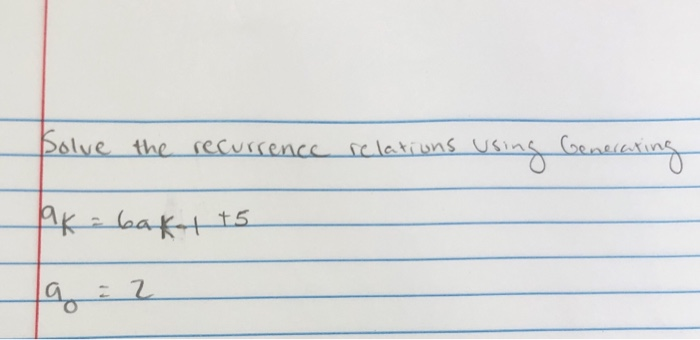 Solve the recurrence relations using Generating
aK = 6aK-1 +5
a0 = 2